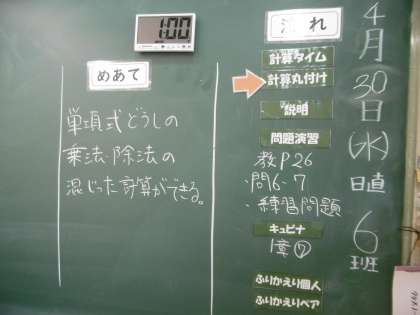 1:00
めあて
単項式どうしの
乗法・除法の
混じった計算ができる。
流れ
計算タイム
計算丸付け
説明
問題演習
教P26
・問6-7
・練習問題
キュビナ
1章⑦
ふりかえり個人
ふりかえりペア
4月30日(水)
日直
6班